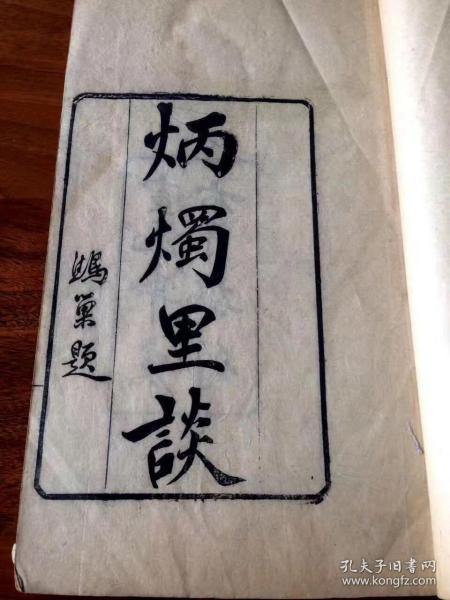 炳燭里談
鴟巢題
孔夫子旧书网
www.kongfz.com